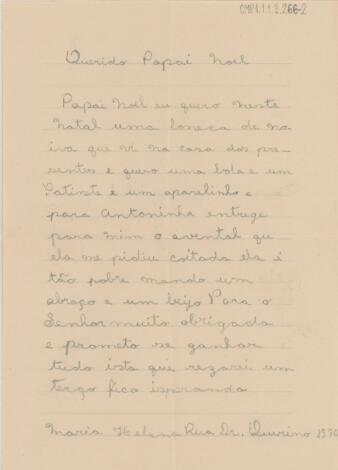 CMP1.1.3.266-2
Querido Papai Noel
Papai Noel eu quero neste
natal uma boneca de no
iva que vi na casa dos pre-
sentes e quero uma bola e um
Patinete e um aparelinho e
para Antoninha entrege
para mim o avental que
ela me pidiu coitada ela é
tão pobre mando um
abraço e um beijo Para o
Senhor muito obrigada
e prometo se ganhar
tudo ista que rezarei um
terço fico isperando
Maria Helena Rua Dr. Quirino